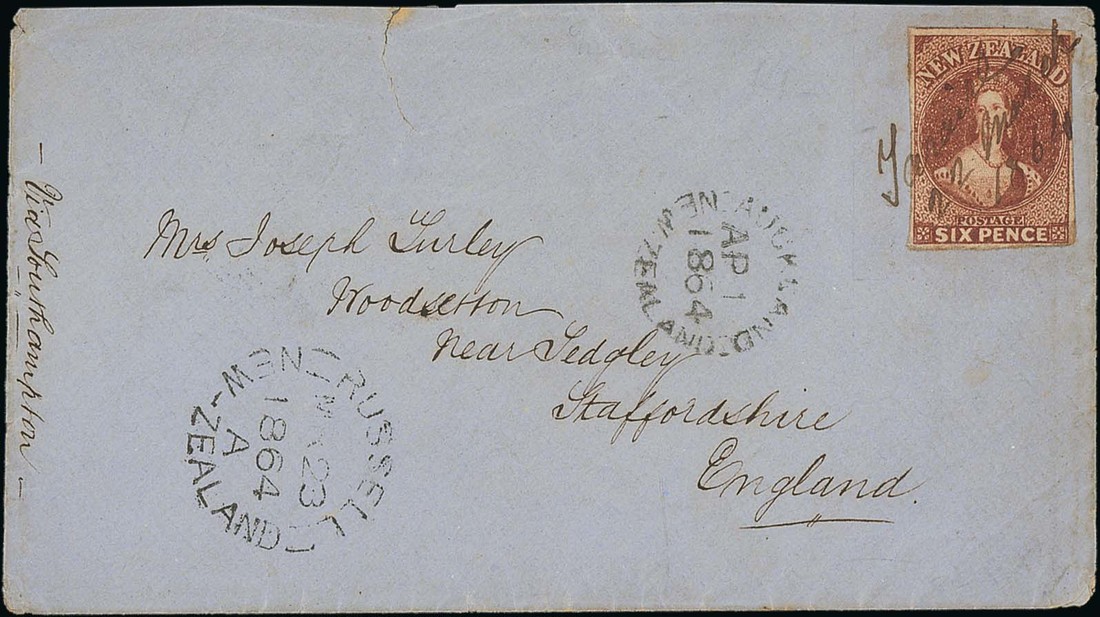 NEW ZEALAND
POSTAGE
SIX PENCE
- Via Southampton -
Mrs Joseph Turley
Woodsetton
Near Sedgley
Staffordshire
England.
AUCKLAND
AP 1
1864
NEW-ZEALAND
RUSSELL
23
1864
A
NEW-ZEALAND